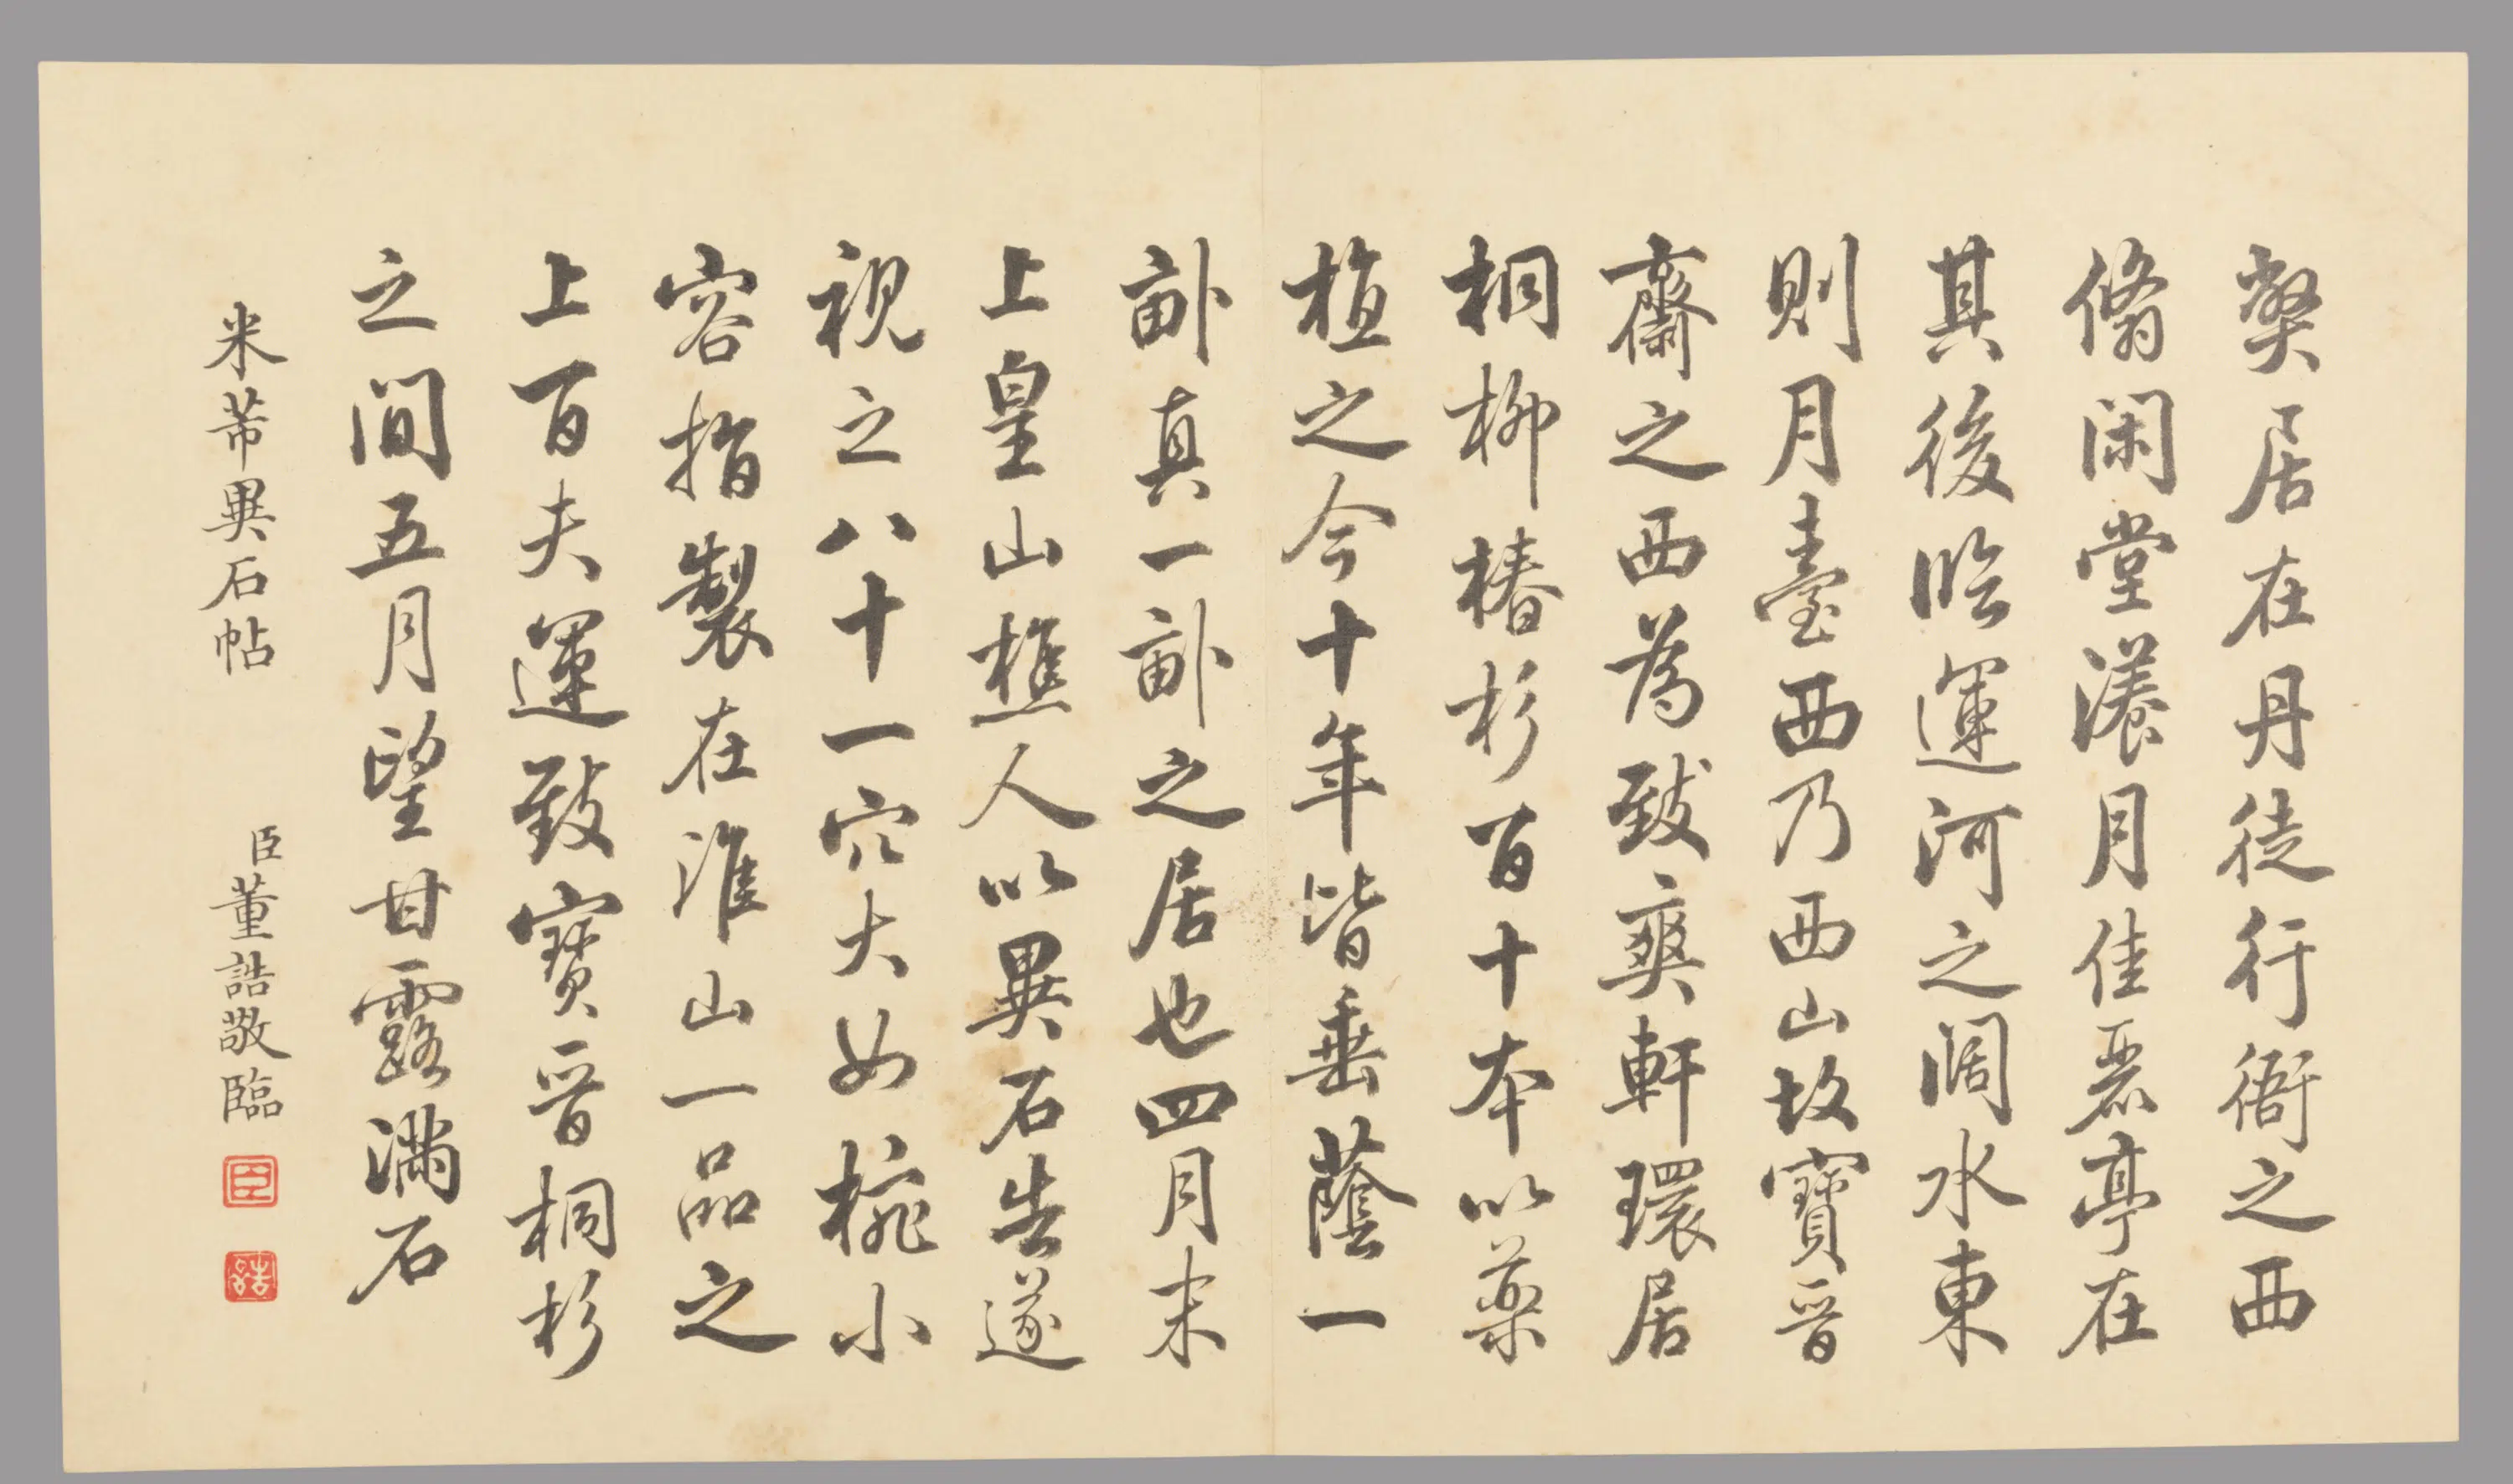 弊居在丹徒行衙之西
翛閑堂漾月佳麗亭在
其後臨運河之闊水東
則月臺西乃西山故寶晉
齋之西為致爽軒環居
桐柳椿杉百十本以藥
植之今十年皆垂蔭一
畝真一畝之居也四月末
上皇山樵人以異石告遂
視之八十一穴大如椀小
容指製在淮山一品之
上百夫運致寶晉桐杉
之間五月望甘露滿石
米芾異石帖
臣董誥敬臨
臣
誥